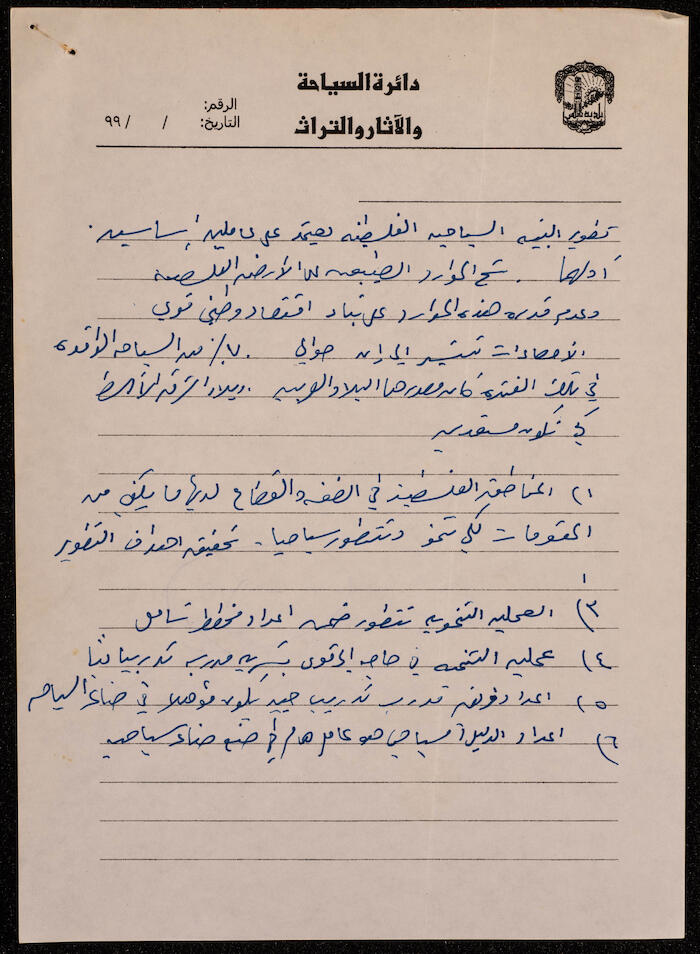 دائرة السياحة
والآثار والتراث
الرقم:
التاريخ: / / ٩٩
تطوير البنيه السياحيه الفلسطينه يعتمد على عاملين أساسين.
أولهما . شح الموارد الطبيعيه في الأرض الفلسطينيه
وعدم قدرة هذه الموارد على بناء اقتصاد وطني قوي
الاحصاءات تشير إلى ان حوالي ٧٠٪ من السياحه الوافدة
في تلك الفتره كان مصدرها البلاد العربيه . وبلاد الشرق الأوسط
كي نكون مستعدين
٢) المناطق الفلسطينيه في الضفه والقطاع لديها ما يكفي من
المقومات لكي تنمو وتتطور سياحيا - تحقيق اهداف التطوير
٣) العمليه التنمويه تتطور ضمن اعداد مخطط شامل
٤) عمليه التنميه في حاجه إلى قوى بشريه مدربه تدريبا فنيا
٥) اعداد فريق مدرب تدريب جيد يكون مؤهلا في صناعة السياحه
٦) اعداد الدليل السياحي هو عامل هام في صنع صناعه سياحيه